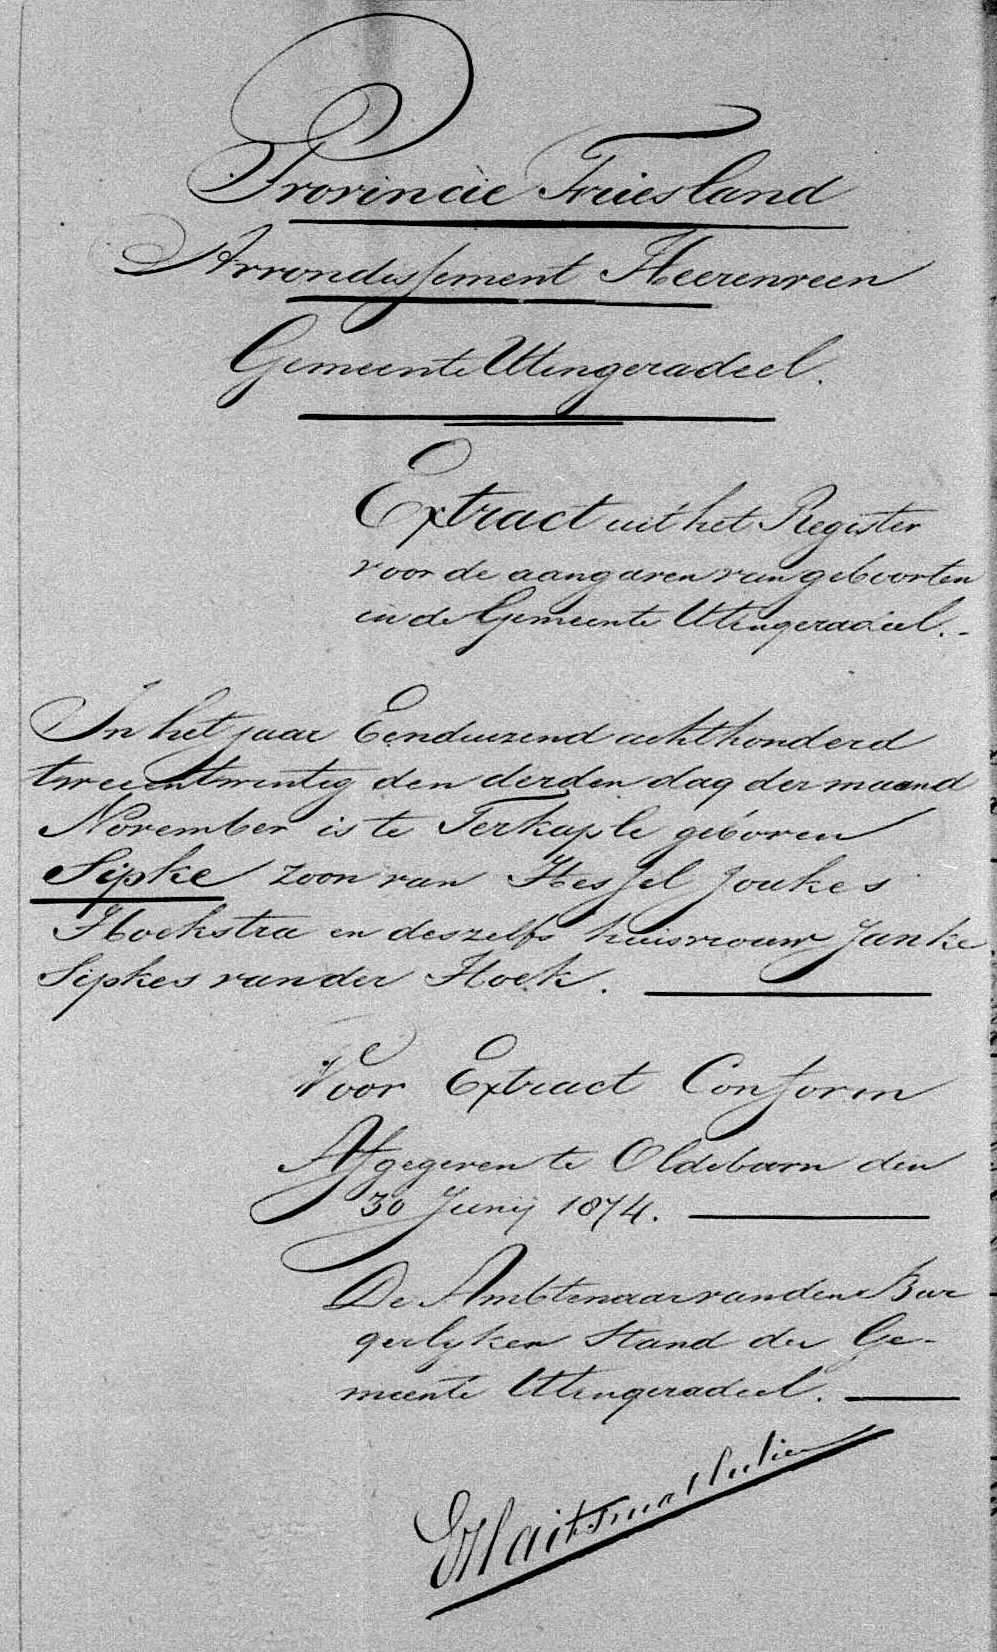 Provincie Friesland
Arrondissement Heerenveen
Gemeente Utingeradeel.
Extract uit het Register
voor de aangaven van geboorten
in de Gemeente Utingeradeel.-
In het jaar Eenduizend achthonderd
tweeentwintig den derden dag der maand
November is te Terkaple geboren
Sipke zoon van Hessel Joukes
Hoekstra en deszelfs huisvrouw Janke
Sipkes van der Hoek.
Voor Extract Conform
Afgegeven te Oldeboorn den
30 Junij 1874.
De Ambtenaar van den Bur
gerlyken Stand der Ge-
meente Utingeradeel.
Haitsma